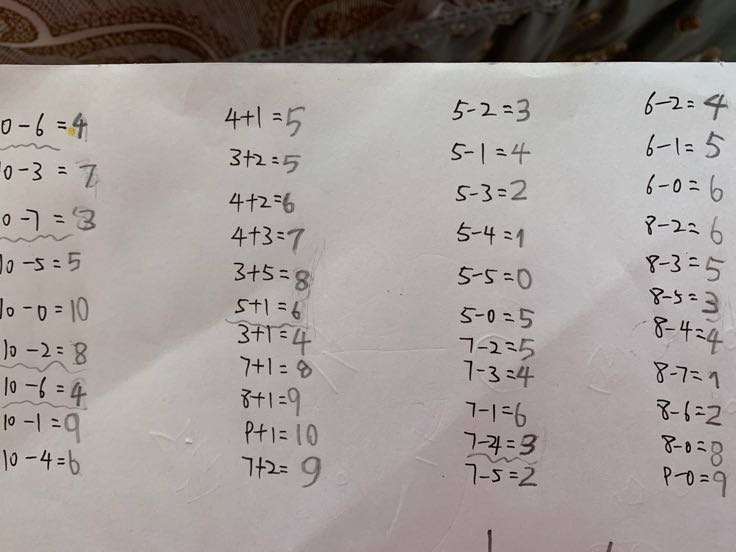 10-6=4
10-3=7
10-7=3
10-5=5
10-0=10
10-2=8
10-6=4
10-1=9
10-4=6
4+1=5
3+2=5
4+2=6
4+3=7
3+5=8
5+1=6
3+1=4
7+1=8
8+1=9
9+1=10
7+2=9
5-2=3
5-1=4
5-3=2
5-4=1
5-5=0
5-0=5
7-2=5
7-3=4
7-1=6
7-4=3
7-5=2
6-2=4
6-1=5
6-0=6
8-2=6
8-3=5
8-5=3
8-4=4
8-7=1
8-6=2
8-0=8
9-0=9